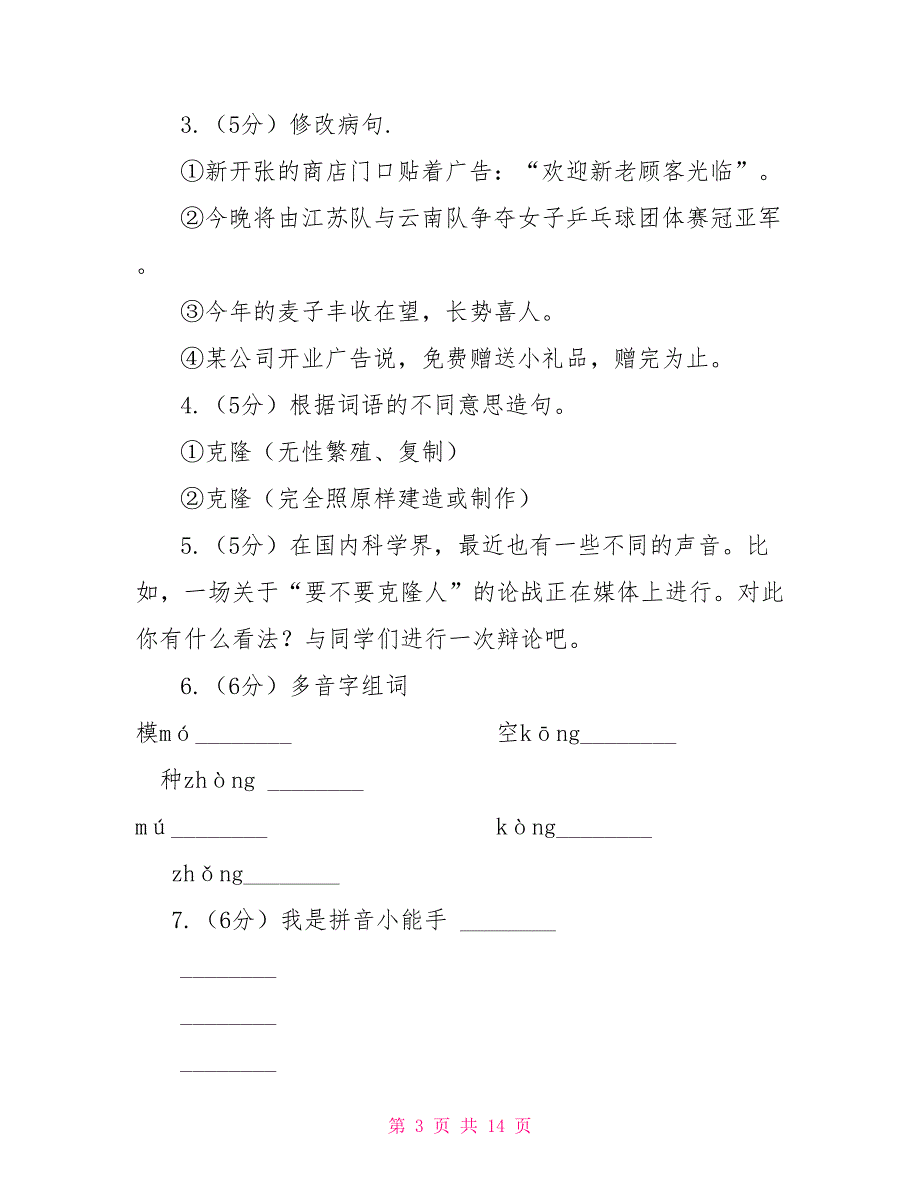 3.（5分）修改病句.
①新开张的商店门口贴着广告：“欢迎新老顾客光临”。
②今晚将由江苏队与云南队争夺女子乒乓球团体赛冠亚军
。
③今年的麦子丰收在望，长势喜人。
④某公司开业广告说，免费赠送小礼品，赠完为止。
4.（5分）根据词语的不同意思造句。
①克隆（无性繁殖、复制）
②克隆（完全照原样建造或制作）
5.（5分）在国内科学界，最近也有一些不同的声音。比
如，一场关于“要不要克隆人”的论战正在媒体上进行。对此
你有什么看法？与同学们进行一次辩论吧。
6.（6分）多音字组词
模mó________ 空kōng________
种zhòng ________
mú________ kòng________
zhǒng________
7.（6分）我是拼音小能手 ________
________
________
________
第 3 页 共 14 页